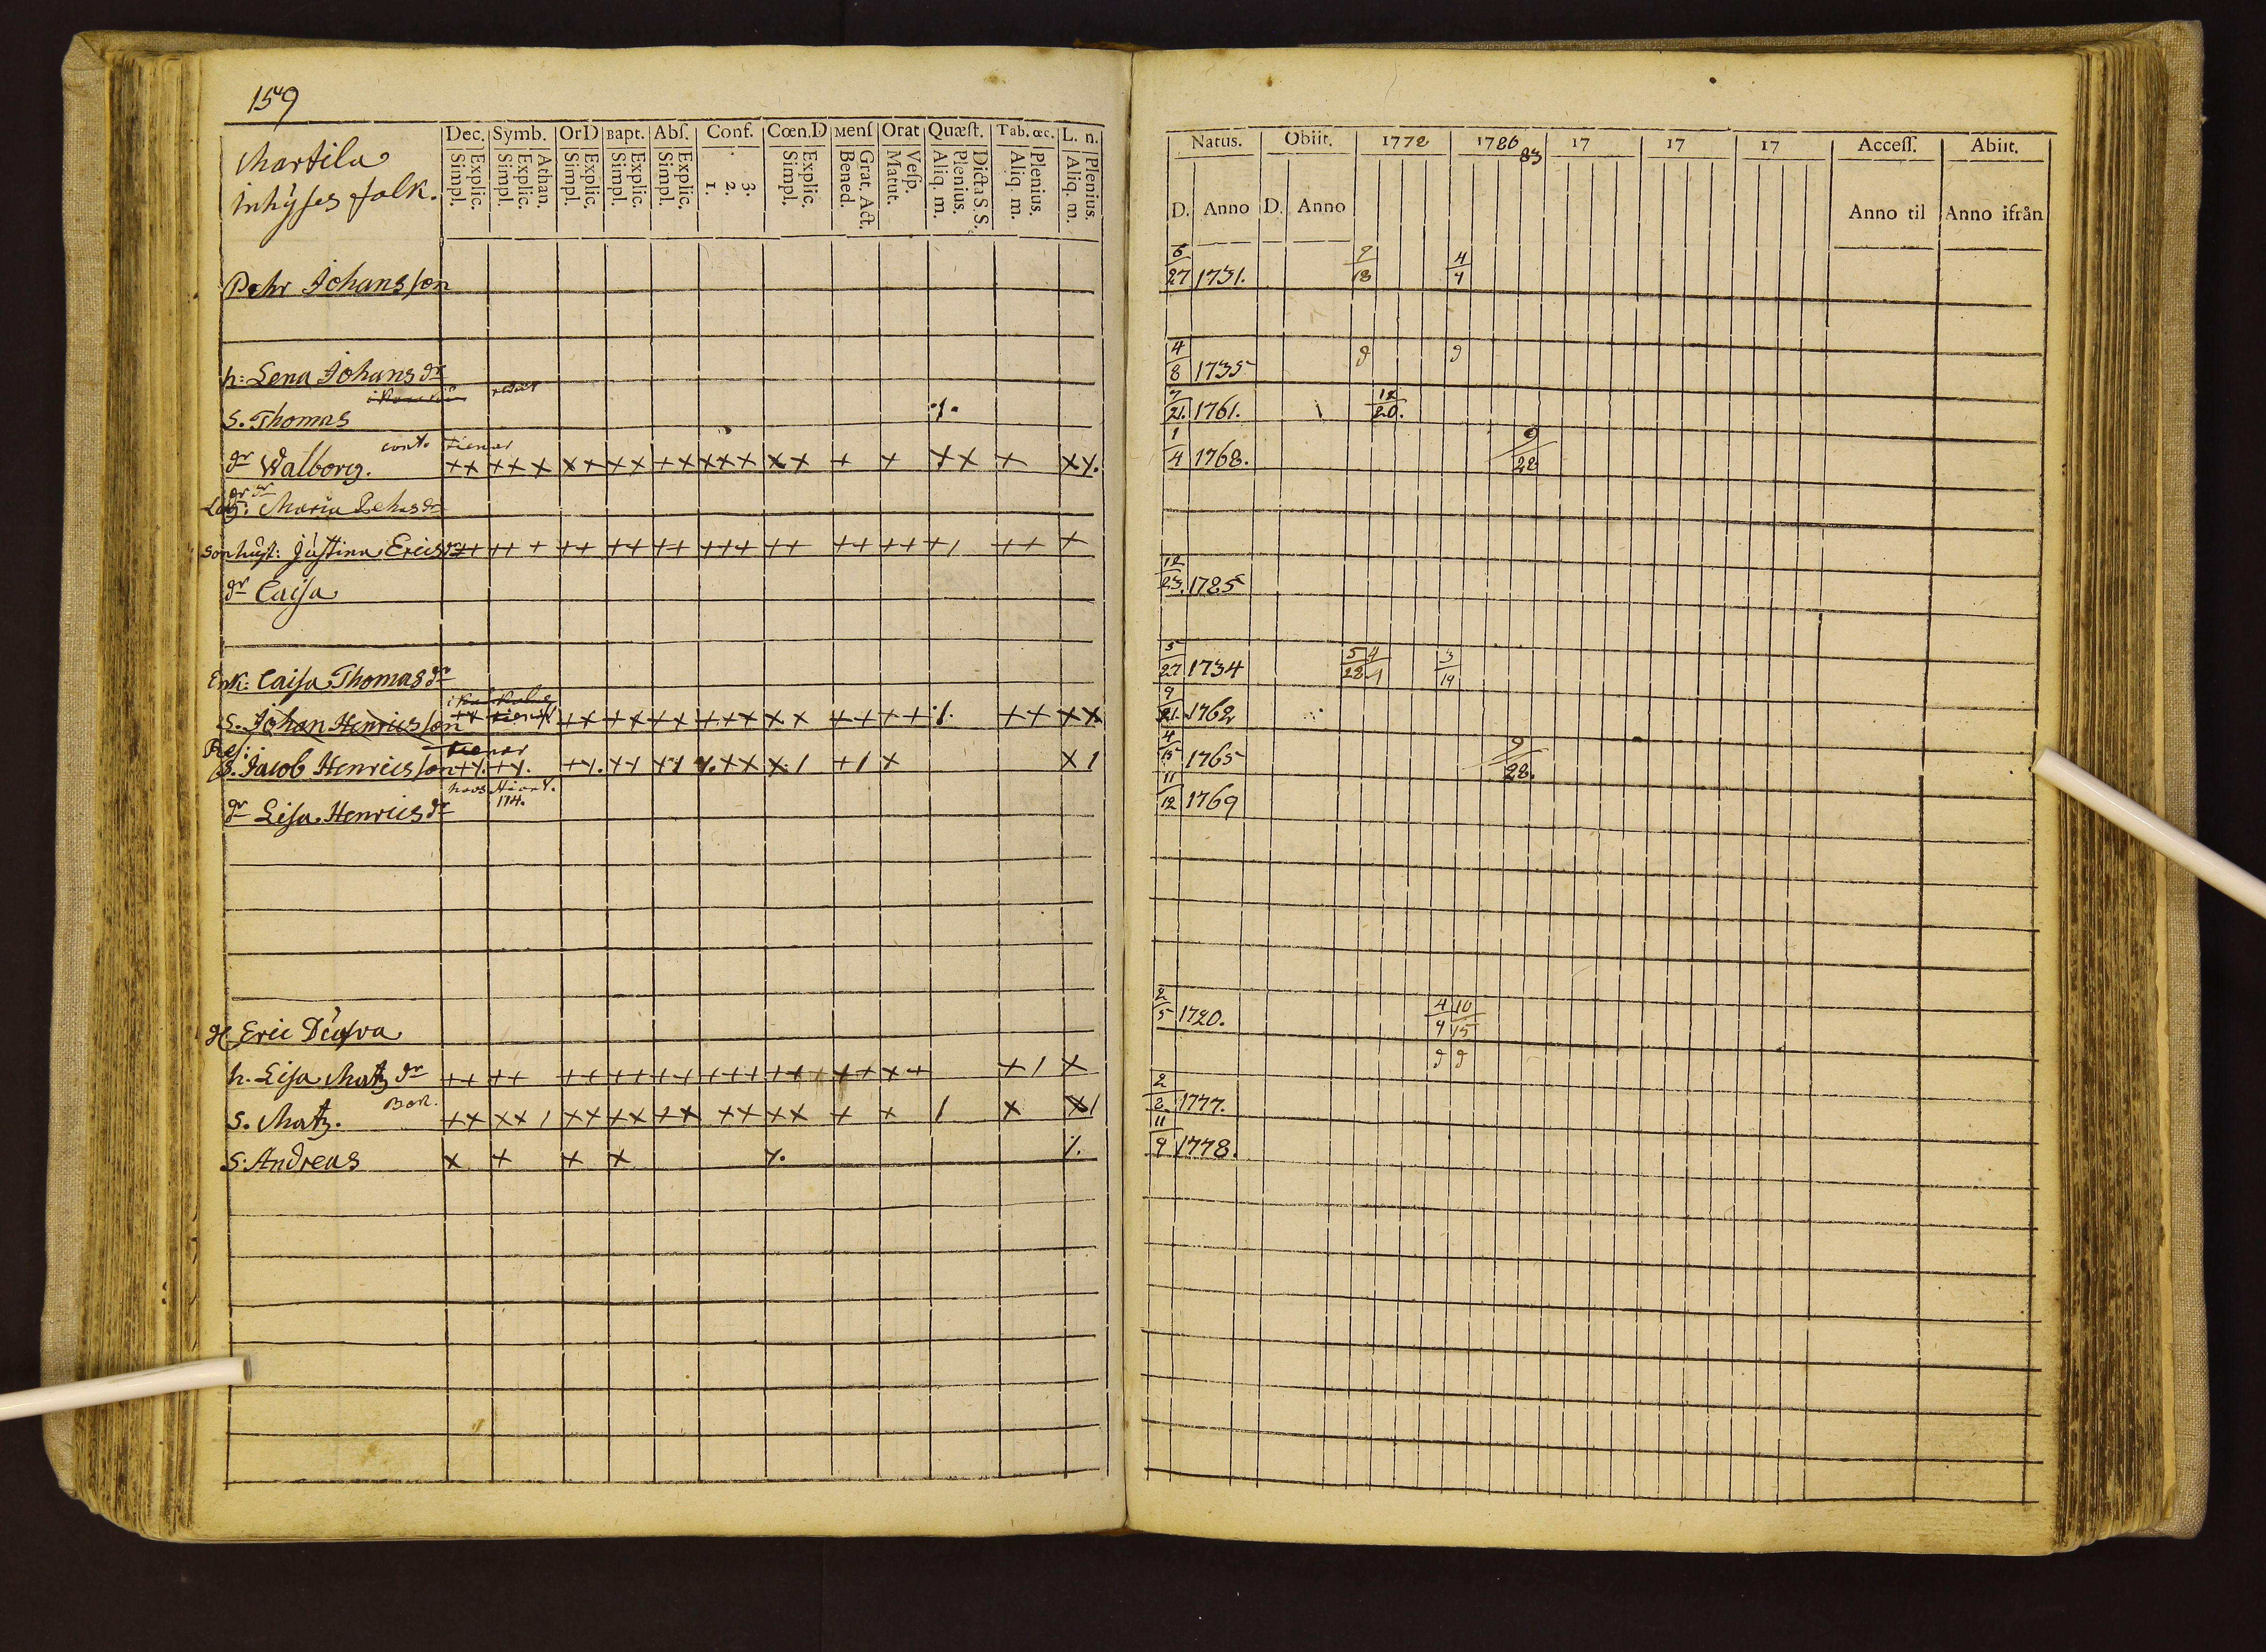 159
Martila
inhyses folk.
Dec. Symb. OrD Bapt. Abſ. Conf. Cœn.D Menſ Orat Quæſt. Tab. œc. L. n.
Simpl. Explic. Simpl. Explic. Athan. Simpl. Explic. Simpl. Explic. Simpl. Explic. 1. 2. 3. Simpl. Explic. Bened. Grat. Act. Matut. Veſp. Aliq. m. Plenius. Dicta S.S. Aliq. m. Plenius. Aliq. m. Plenius.
Natus. Obiit. 1772 1786 83 17 17 17 Acceſſ. Abiit.
D. Anno D. Anno Anno til Anno ifrån
Pehr Johansson 6/27 1731. 9/18 4/4
h: Lena Johans dr 4/8 1735 9 9
S. Thomas 7/21. 1761. 12/20.
dr Walborg. tienar 1/4 1768. 9/28
dr Maria Pehrs dr
Sonhust: Justina Erics dr
dr Caisa 12/23. 1785
Enk: Caisa Thomas dr 5/27 1734 5/28 4/1 3/19
S. Johan Henricsson 9/21. 1762
tienar
S. Jacob Henricsson 4/15 1765 9/28.
hoos
174.
dr Lisa Henrics dr 11/12 1769
Eric 2/5 1720. 4/4 10/15
h. Lisa Matz dr 9 9
S. Matz. 2/2 1777.
S. Andreas 11/9 1778.